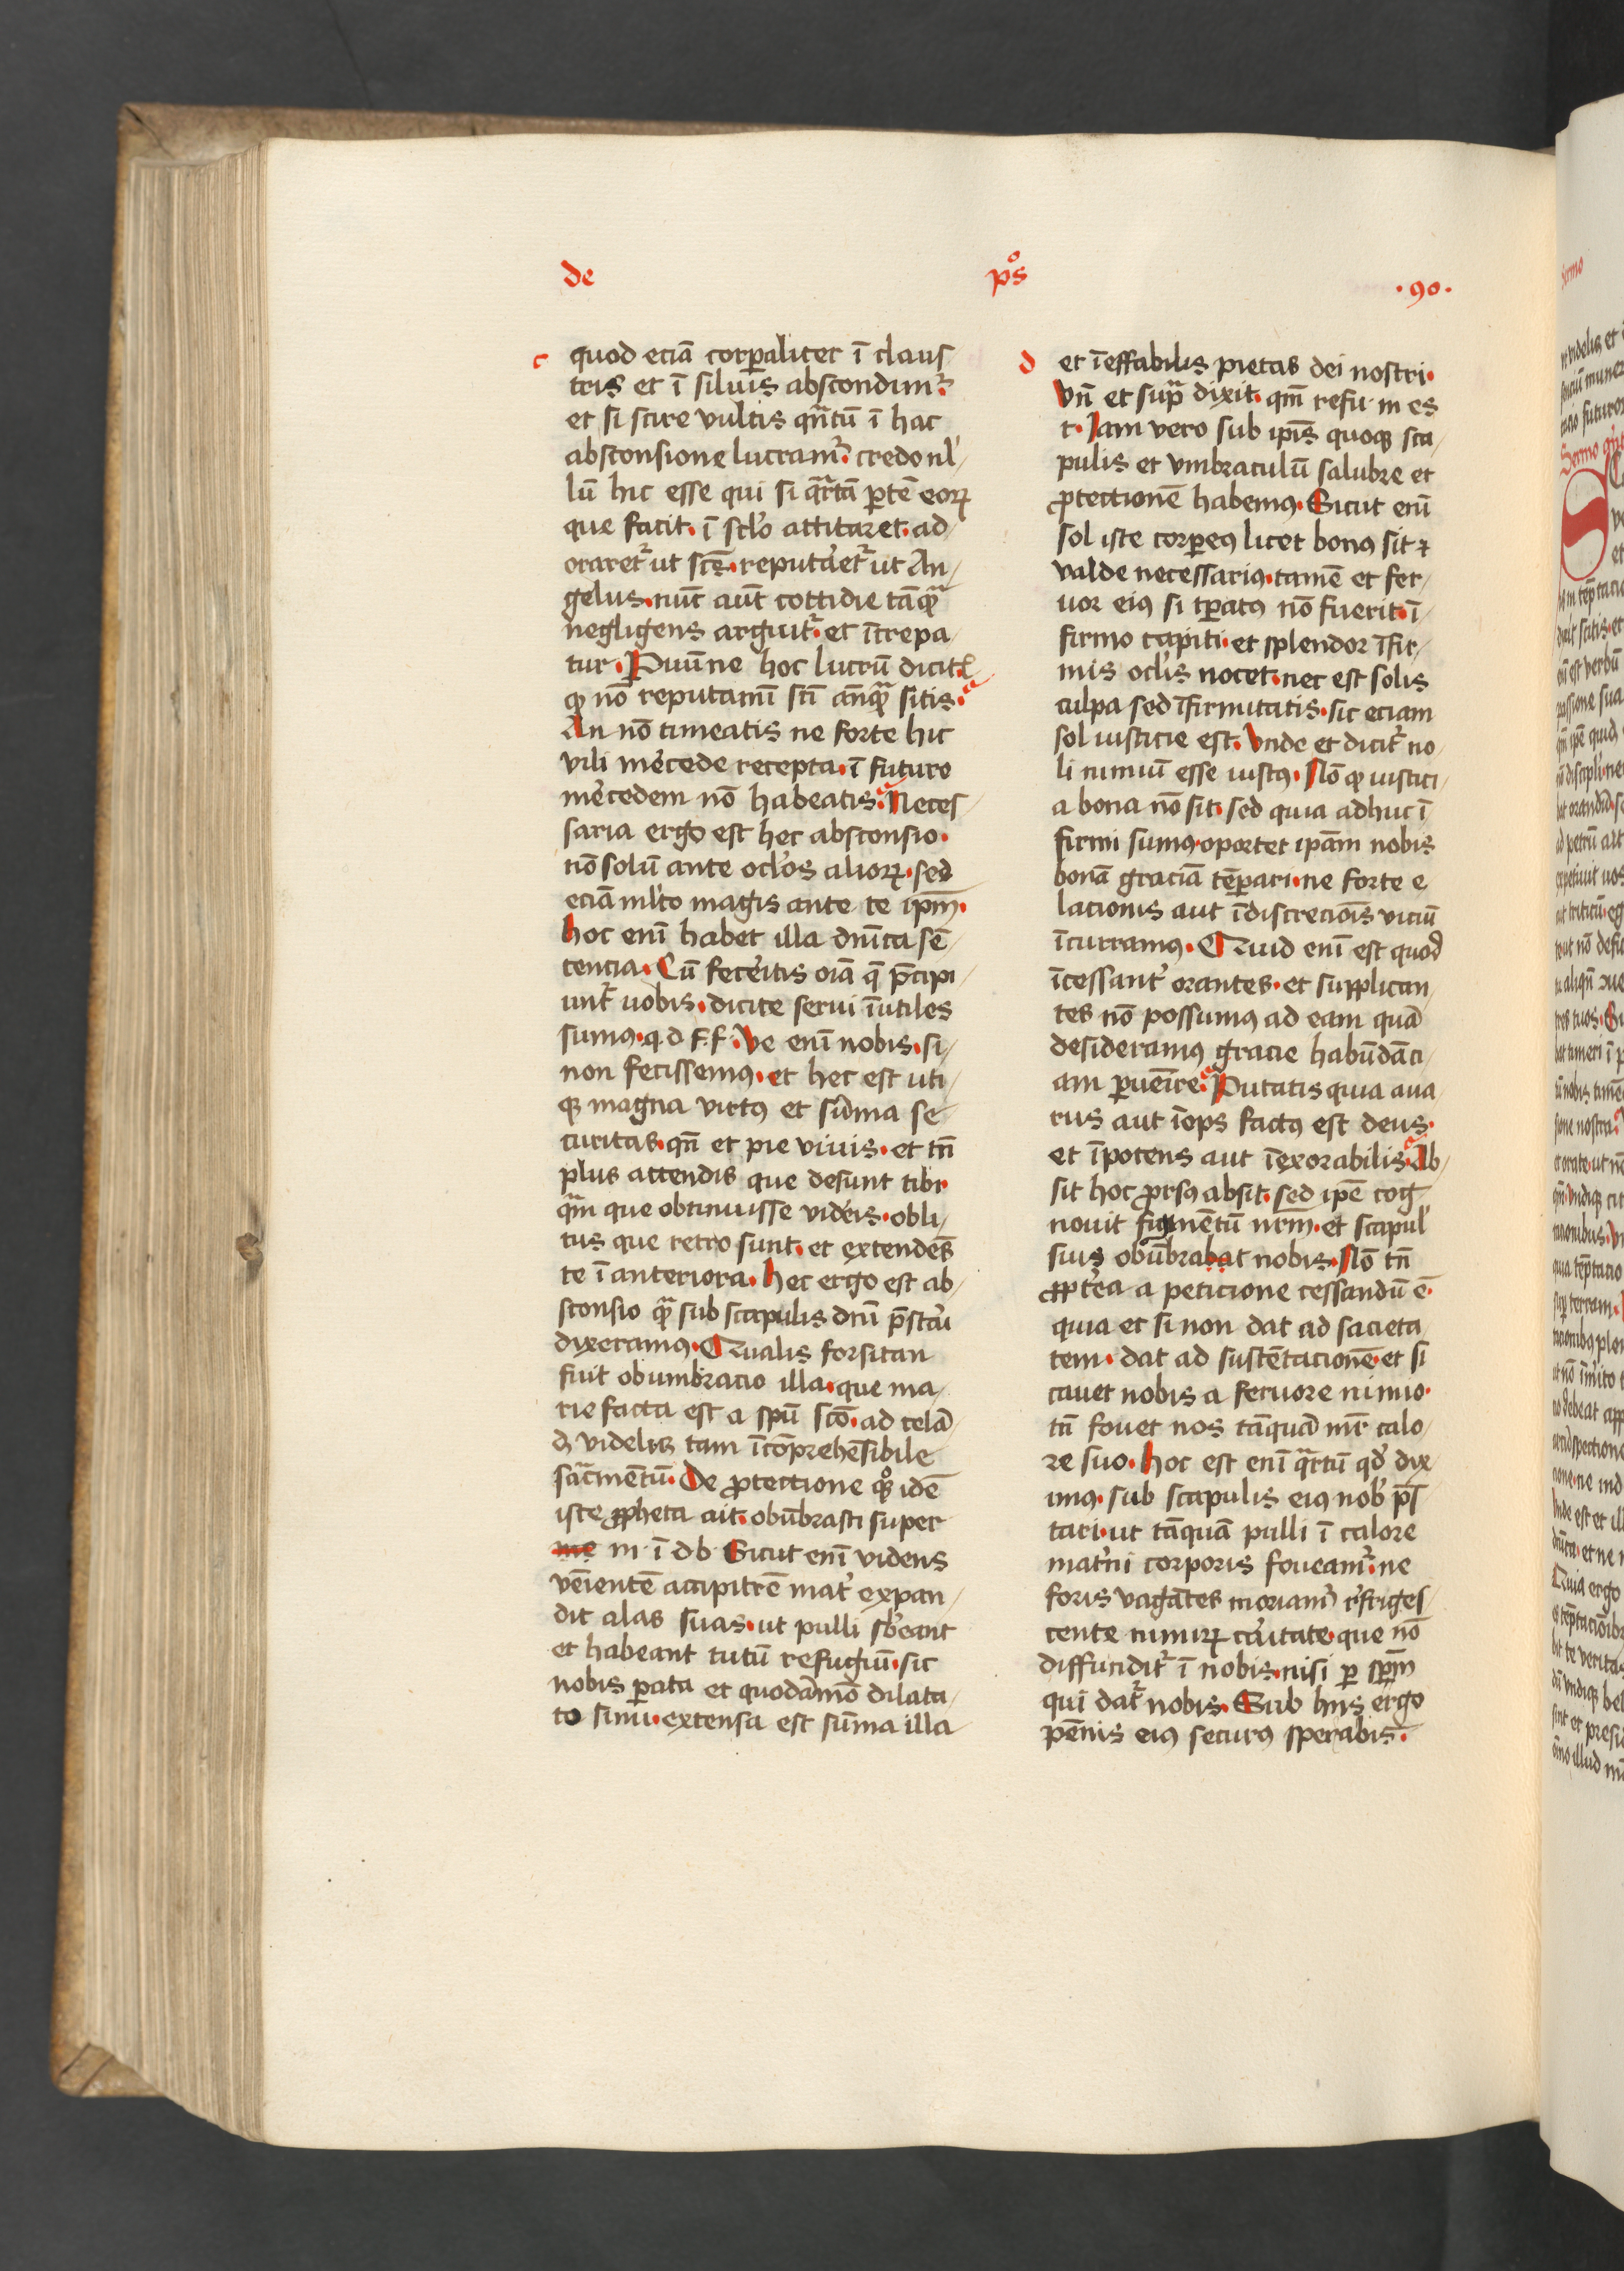 de pͦs ·90·
c
quod eciā corꝑaliter ī claus
tris et ī siluis abscondimr̉
et si scire vultis qn̄tū ī hac
absconsione lucramr̉. credo nl̉
lū hic esse qui si qr̄tā ꝑtē eoꝝ
que facit. ī sclo̓ actitaret. ad
oraretr̉ ut scs̄. reputaretr̉ ut An
gelus. nūc aūt cottidie tāqᷓ
negligens arguitr̉. et īcrepa
tur. Puūne hoc lucrū dicitꝭ
ꝙ nō reputaminī scī anqᷓ sitis.
An nō timeatis ne forte hic
vili mêcede recepta. ī futuro
mêcedem nō habeatis. Neces
saria ergo est hec absconsio.
nō solū ante oclo̓s alioꝝ. sed
eciā ml̓to magis ante te ip̄m.
hoc enī habet illa dn̄ica sē
tencia. Cū fecêitis oīa q̄ p̄cipi
untr̉ uobis. dicite serui īutiles
sumꝰ. q d f. f. Ve enī nobis. si
non fecissemꝰ. et hec est uti
qꝫ magna virtꝰ et sūma se
curitas. qn̄ et pie viuis. et tn̄
plus attendis que desunt tibi
qᷓm que obtinuisse vidêis. obli
tus que retro sunt. et extendēs
te ī anteriora. hec ergo est ab
sconsio qᷓ sub scapulis dn̄i p̄stari
dixeramꝰ. Qualis forsitan
fuit obumbracio illa. que ma
rie facta est a spū scō. ad celā
dꝫ videlicꝫ tam īcōprehēsibile
sacᷓmentū. De ꝓtectione qͦꝫ idē
iste ꝓpheta ait. obūbrasti super
me m ī d b Sicut enī videns
venientē accipitrē mat̉ expan
dit alas suas. ut pulli sb̓eant
et habeant tutū refugiū. sic
nobis ꝑata et quodāmō dilata
to sinu. extensa est sūma illa
d
et īeffabilis pietas dei nostri.
Vn̄ et supᷓ dixit. qm̄ refu m es
t. Iam vero sub ip̄is quoqꝫ sca
pulis et vmbraculū salubre et
ꝓtectionē habemꝰ. Sicut enī
sol iste corꝑeꝰ licet bonꝰ sit ⁊
valde necessariꝰ. tamē et fer
uor eiꝰ si tꝑatꝰ nō fuerit. ī
firmo capiti. et splendor īfir
mis oclis̓ nocet. nec est solis
culpa sed īfirmitatis. sic eciam
sol iusticie est. Vnde et dicitr̉ no
li nimiū esse iustꝰ. Nō ꝙ iustici
a bona nō sit. sed quia adhuc ī
firmi sumꝰ. oportet ip̄am nobis
bonā graciā tēꝑari. ne forte e
lacionis aut īdiscrecionis viciū
īcurramꝰ. Quid enī est quod
īcessant̉ orantes. et supplican
tes nō possumꝰ ad eam quā
desideramꝰ gracie habūdāci
am ꝑuēire. Putatis quia aua
rus aut īops factꝰ est deus.
et īpotens aut īexorabilis. Ab
sit hoc ꝓrsꝰ absit. sed ip̄e cog
nouit figmētū nr̄m. et scapul̓
suis obūbrabat nobis. Nō tn̄
ꝓpt̓ea a peticione cessandū ē.
quia et si non dat ad sacieta
tem. dat ad sustētacionē. et si
cauet nobis a feruore nimio.
tn̄ fouet nos tāquā mr̄ calo
re suo. Hoc est enī qr̄tū qd̓ dix
imꝰ. sub scapulis eiꝰ nob̓ p̄s
tari. ut tāquā pulli ī calore
mat̓ni corporis foueamr̉. ne
foris vagātes moriamr̉ r̓friges
cente nimiꝝ cāitate. que nō
diffunditr̉ ī nobis. nisi ꝑ sp̄m
qui datr̉ nobis. Sub hiis ergo
pēnis eiꝰ securꝰ sperabis.